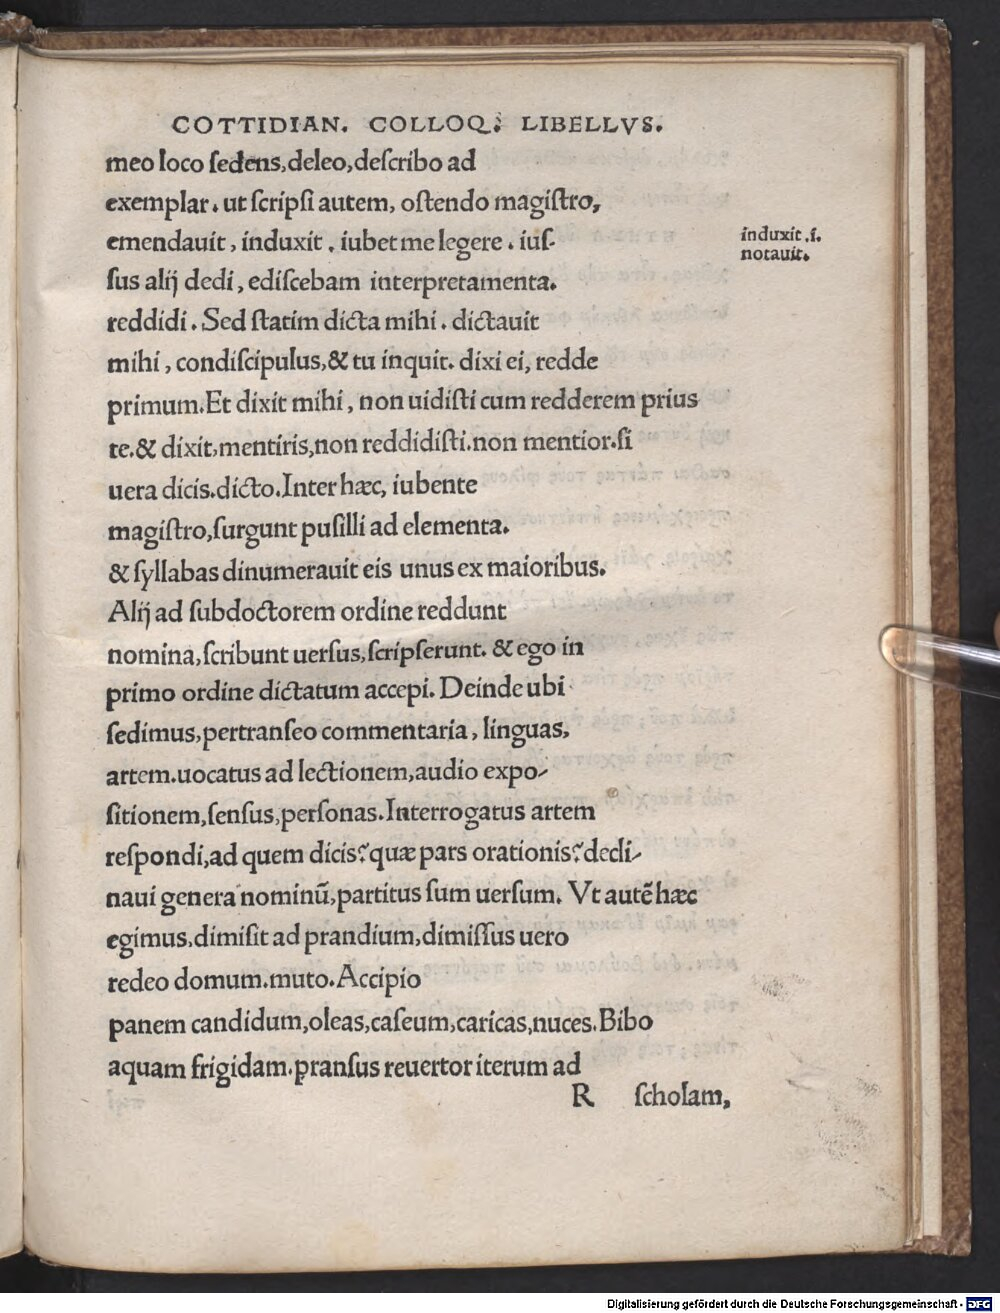 COTTIDIAN. COLLOQ; LIBELLVS.
meo loco ſedens,deleo,deſcribo ad
exemplar. ut ſcripſi autem, oſtendo magiſtro,
emendauit, induxit. iubet me legere. iuſ-
induxit .ſ.
notauit.
ſus alij dedi, ediſcebam interpretamenta.
reddidi. Sed ſtatim dicta mihi. dictauit
mihi, condiſcipulus,& tu inquit. dixi ei, redde
primum.Et dixit mihi, non uidiſti cum redderem prius
te.& dixit,mentiris,non reddidiſti.non mentior.ſi
uera dicis.dicto.Inter hæc, iubente
magiſtro,ſurgunt puſilli ad elementa.
& ſyllabas dinumerauit eis unus ex maioribus.
Alij ad ſubdoctorem ordine reddunt
nomina,ſcribunt uerſus,ſcripſerunt. & ego in
primo ordine dictatum accepi. Deinde ubi
ſedimus,pertranſeo commentaria, linguas,
artem.uocatus ad lectionem,audio expo-
ſitionem,ſenſus,perſonas.Interrogatus artem
reſpondi,ad quem dicis?quæ pars orationis?decli-
naui genera nominũ,partitus ſum uerſum. Vt autẽ hæc
egimus,dimiſit ad prandium,dimiſſus uero
redeo domum.muto.Accipio
panem candidum,oleas,caſeum,caricas,nuces.Bibo
aquam frigidam.pranſus reuertor iterum ad
R ſcholam,
Digitalisierung gefördert durch die Deutsche Forschungsgemeinschaft - DFG